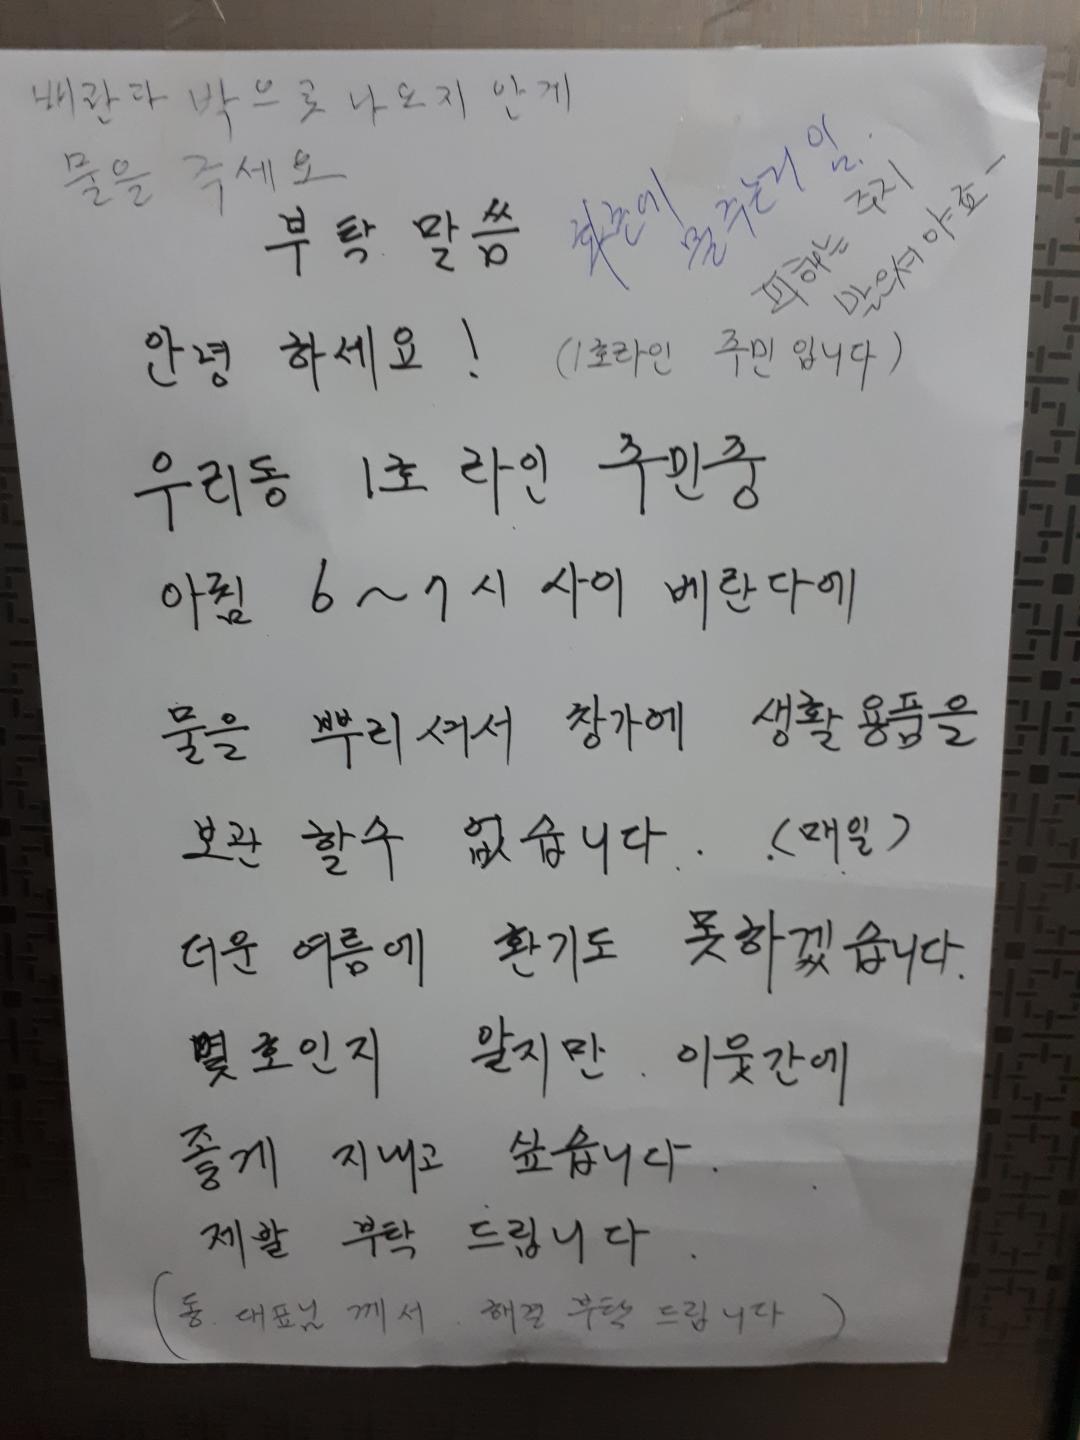 배란다 박으로 나오지 안게
물을 주세요
부탁 말씀
화분에 물 주는거 임.
피해는 주지
말으셔야죠-
안녕 하세요! (1호라인 주민입니다)
우리동 1호 라인 주민중
아침 6~7시 사이 베란다에
물을 뿌리셔서 창가에 생활용품을
보관 할수 없습니다. (매일)
더운 여름에 환기도 못하겠습니다.
몇호인지 알지만. 이웃간에
좋게 지내고 싶습니다.
제발 부탁 드립니다.
(동. 대표님 께서. 해결 부탁 드립니다)